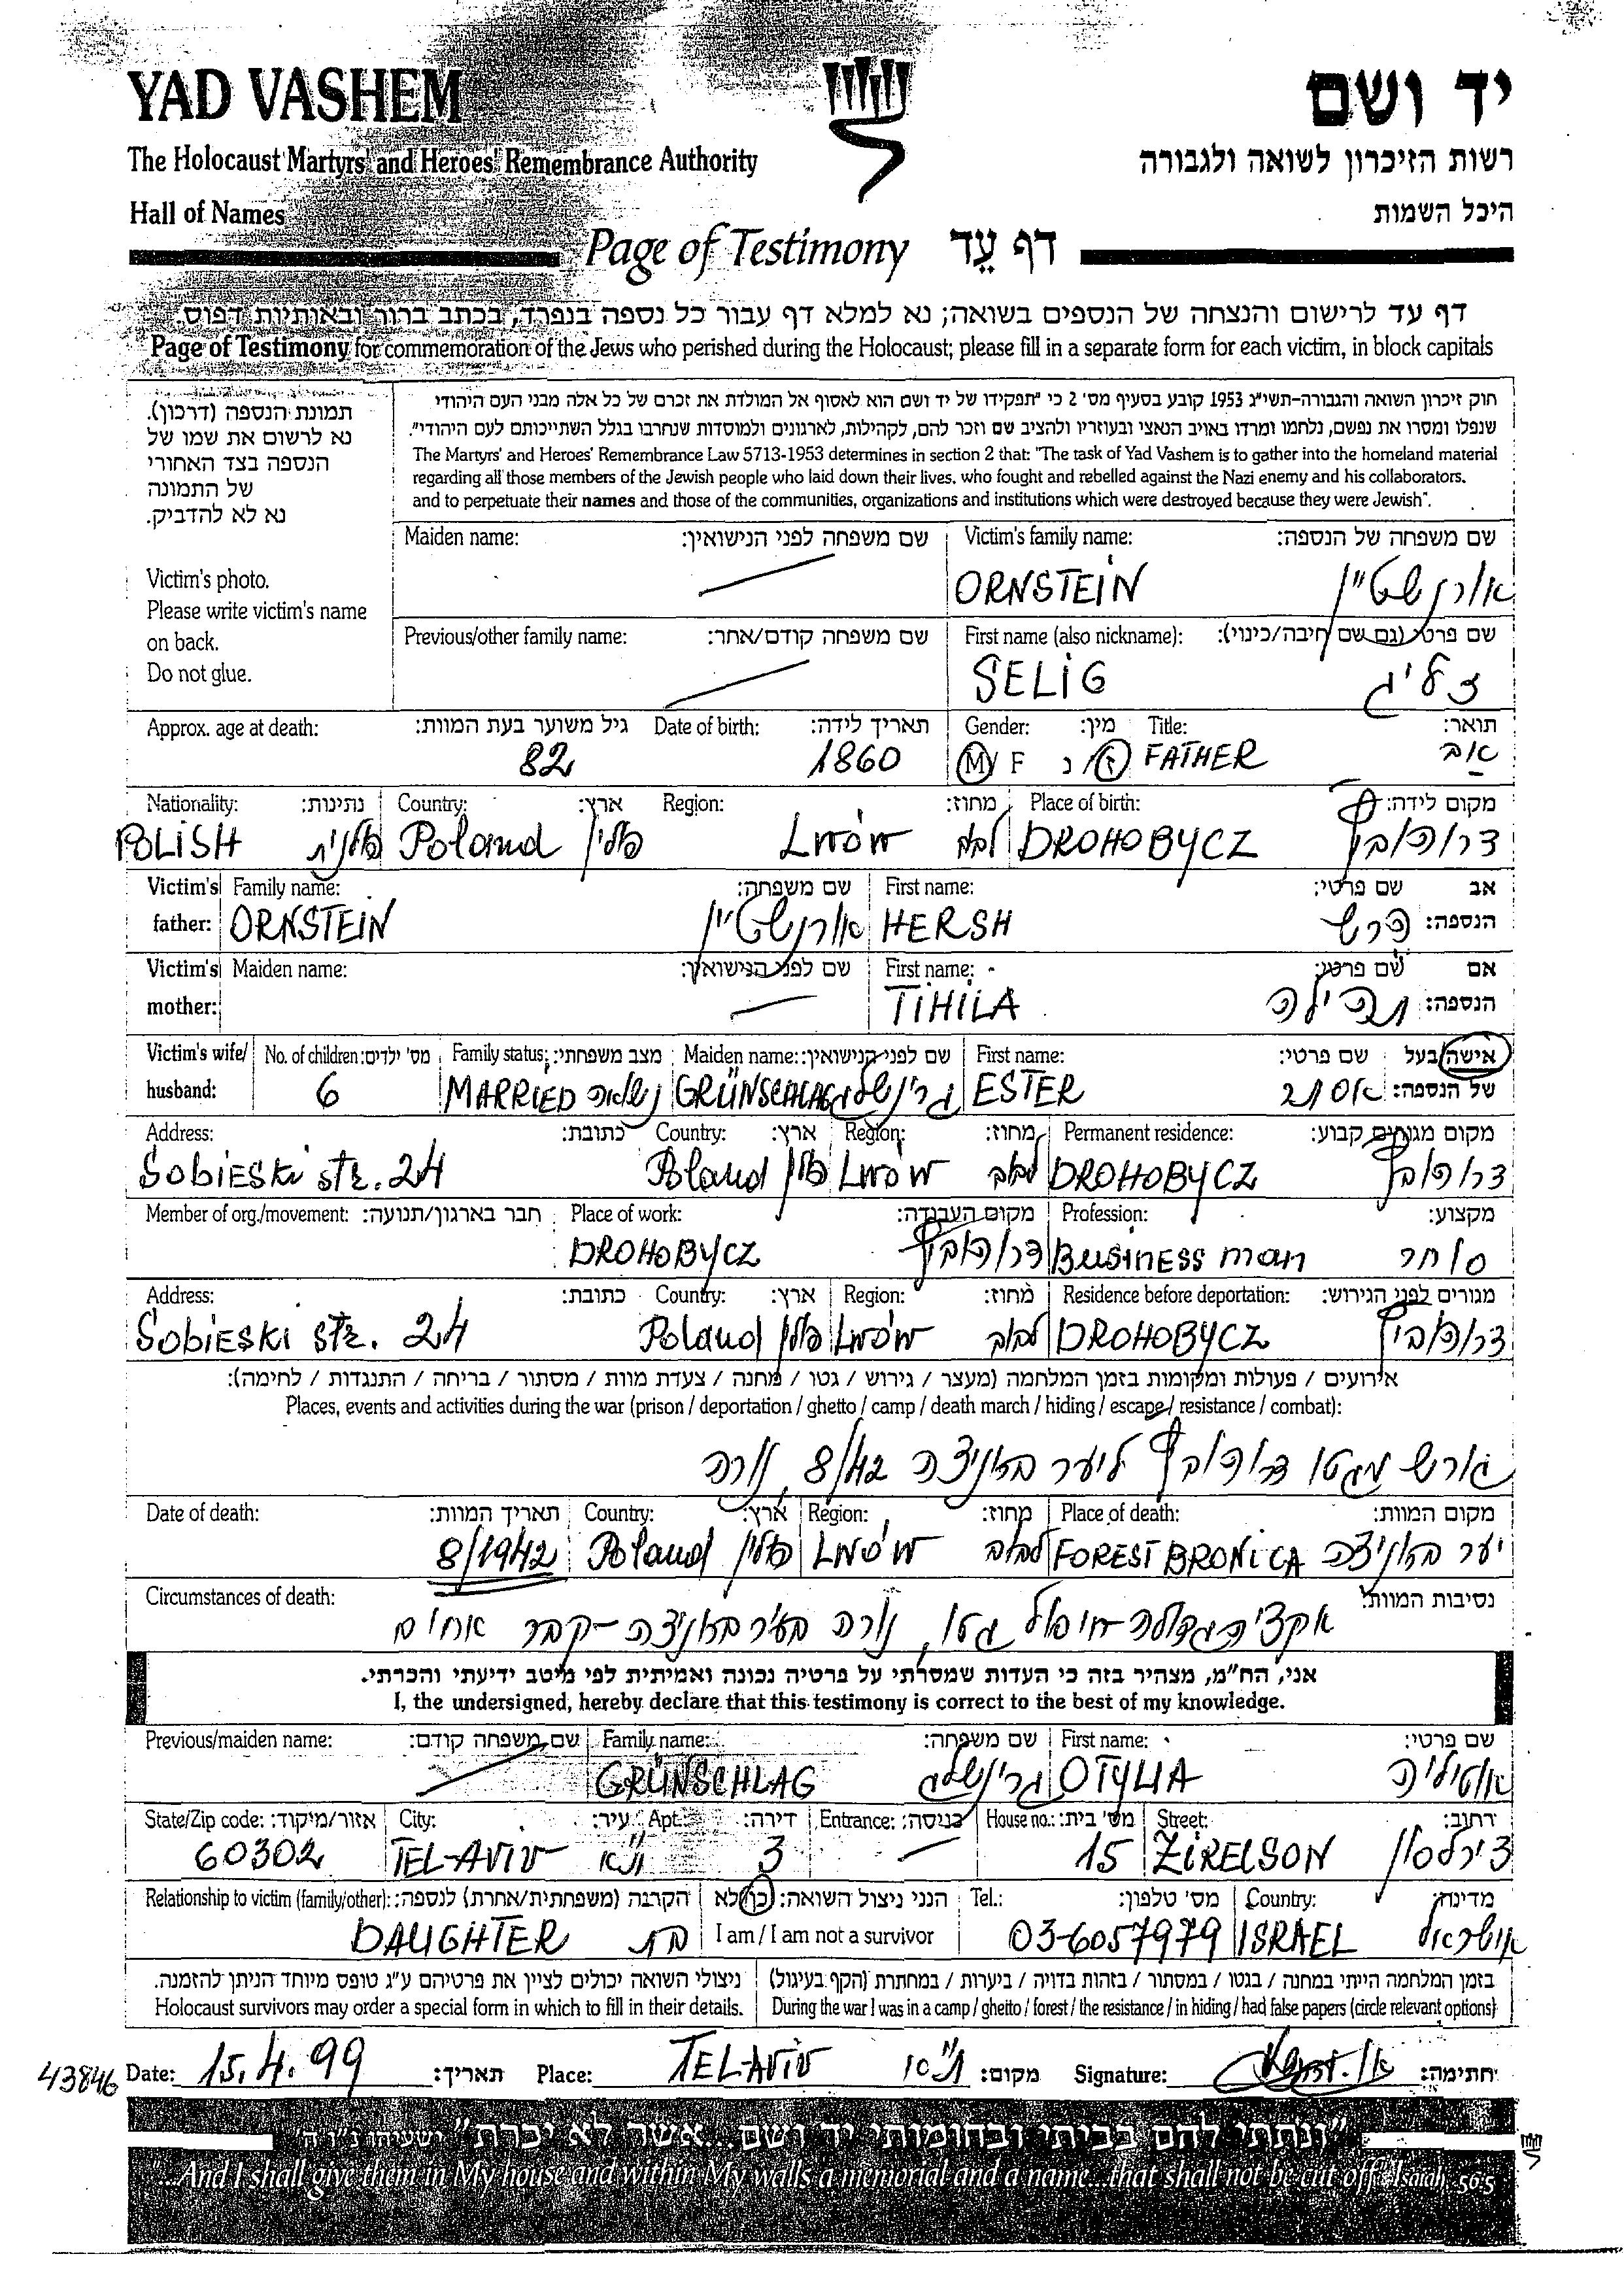 YAD VASHEM יד ושם
The Holocaust Martyrs' and Heroes' Remembrance Authority רשות הזיכרון לשואה ולגבורה
Hall of Names היכל השמות
Page of Testimony דף עֵד
דף עד לרישום והנצחה של הנספים בשואה; נא למלא דף עבור כל נספה בנפרד, בכתב ברור ובאותיות דפוס.
Page of Testimony for commemoration of the Jews who perished during the Holocaust; please fill in a separate form for each victim, in block capitals
תמונת הנספה (דרכון).
נא לרשום את שמו של
הנספה בצד האחורי
של התמונה
נא לא להדביק.
Victim's photo.
Please write victim's name
on back.
Do not glue.
חוק זיכרון השואה והגבורה-תשי"ג 1953 קובע בסעיף מס' 2 כי "תפקידו של יד ושם הוא לאסוף אל המולדת את זכרם של כל אלה מבני העם היהודי
שנפלו ומסרו את נפשם, נלחמו ומרדו באויב הנאצי ובעוזריו ולהציב שם וזכר להם, לקהילות, לארגונים ולמוסדות שנחרבו בגלל השתייכותם לעם היהודי".
The Martyrs' and Heroes' Remembrance Law 5713-1953 determines in section 2 that: "The task of Yad Vashem is to gather into the homeland material
regarding all those members of the Jewish people who laid down their lives, who fought and rebelled against the Nazi enemy and his collaborators,
and to perpetuate their names and those of the communities, organizations and institutions which were destroyed because they were Jewish".
Maiden name: שם משפחה לפני הנישואין: Victim's family name: שם משפחה של הנספה:
ORNSTEIN אורנשטיין
Previous/other family name: שם משפחה קודם/אחר: First name (also nickname): שם פרטי (גם שם חיבה/כינוי):
SELIG זליג
Approx. age at death: גיל משוער בעת המוות: Date of birth: תאריך לידה: Gender: מין: Title: תואר:
82 1860 M/F ז/נ FATHER אב
Nationality: נתינות: Country: ארץ: Region: מחוז: Place of birth: מקום לידה:
POLISH פולנית Poland פולין Lwów לבוב DROHOBYCZ דרוהוביץ
Victim's father: Family name: שם משפחה: First name: שם פרטי: אב הנספה:
ORNSTEIN אורנשטיין HERSH הרש
Victim's mother: Maiden name: שם לפני הנישואין: First name: שם פרטי: אם הנספה:
TIHILA תהילה
Victim's wife/husband: No. of children: מס' ילדים: Family status: מצב משפחתי: Maiden name: שם לפני הנישואין: First name: שם פרטי: אישה/בעל של הנספה:
6 MARRIED נשוא GRÜNSCHLAG גרינשלג ESTER אסתר
Address: כתובת: Country: ארץ: Region: מחוז: Permanent residence: מקום מגורים קבוע:
Sobieski str. 24 Poland פולין Lwów לבוב DROHOBYCZ דרוהוביץ
Member of org./movement: חבר בארגון/תנועה: Place of work: מקום העבודה: Profession: מקצוע:
DROHOBYCZ דרוהוביץ Business man סוחר
Address: כתובת: Country: ארץ: Region: מחוז: Residence before deportation: מגורים לפני הגירוש:
Sobieski str. 24 Poland פולין Lwów לבוב DROHOBYCZ דרוהוביץ
אירועים / פעולות ומקומות בזמן המלחמה (מעצר / גירוש / גטו / מחנה / צעדת מוות / מסתור / בריחה / התנגדות / לחימה):
Places, events and activities during the war (prison / deportation / ghetto / camp / death march / hiding / escape / resistance / combat):
גורש מגטו דרוהוביץ ליער ברוניצה 8/42, נורה
Date of death: תאריך המוות: Country: ארץ: Region: מחוז: Place of death: מקום המוות:
8/1942 Poland פולין Lwów לבוב FOREST BRONICA יער ברוניצה
Circumstances of death: נסיבות המוות:
אקציה גדולה חיסול גטו, נורה ביער ברוניצה - קבר אחים
אני, הח"מ, מצהיר בזה כי העדות שמסרתי על פרטיה נכונה ואמיתית לפי מיטב ידיעתי והכרתי.
I, the undersigned, hereby declare that this testimony is correct to the best of my knowledge.
Previous/maiden name: שם משפחה קודם: Family name: שם משפחה: First name: שם פרטי:
GRÜNSCHLAG גרינשלג OTYLIA אוטיליה
State/Zip code: אזור/מיקוד: City: עיר: Apt.: דירה: Entrance: כניסה: House no.: מס' בית: Street: רחוב:
60302 TEL-AVIV ת"א 3 15 ZIRELSON צירלסון
Relationship to victim (family/other): הקרבה (משפחתית/אחרת) לנספה: הנני ניצול השואה: כן/לא Tel.: מס' טלפון: Country: מדינה:
DAUGHTER בת I am / I am not a survivor 03-6057979 ISRAEL ישראל
ניצולי השואה יכולים לציין את פרטיהם ע"ג טופס מיוחד הניתן להזמנה. בזמן המלחמה הייתי במחנה / בגטו / במסתור / בזהות בדויה / ביערות / במחתרת (הקף בעיגול)
Holocaust survivors may order a special form in which to fill in their details. During the war I was in a camp / ghetto / forest / the resistance / in hiding / had false papers (circle relevant options)
43846 Date: 15.4.99 תאריך: Place: TEL-AVIV מקום: Signature: חתימה:
"ונתתי להם בביתי ובחומותי יד ושם...אשר לא יכרת" ישעיהו נ"ו ה'
...And I shall give them in My house and within My walls a memorial and a name...that shall not be cut off." Isaiah, 56:5